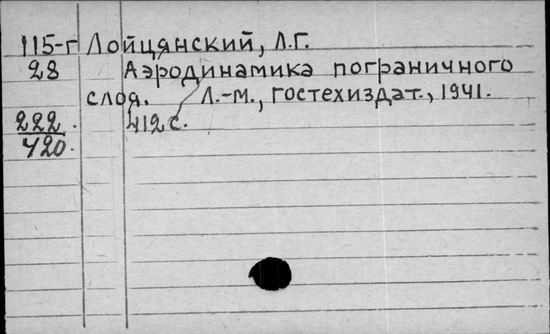 115-г Лойцянский, Л.Г.
28 Аэродинамика пограничного
слоя. Л.-М., Гостехиздат., 1941.
222. 412 с.
420.